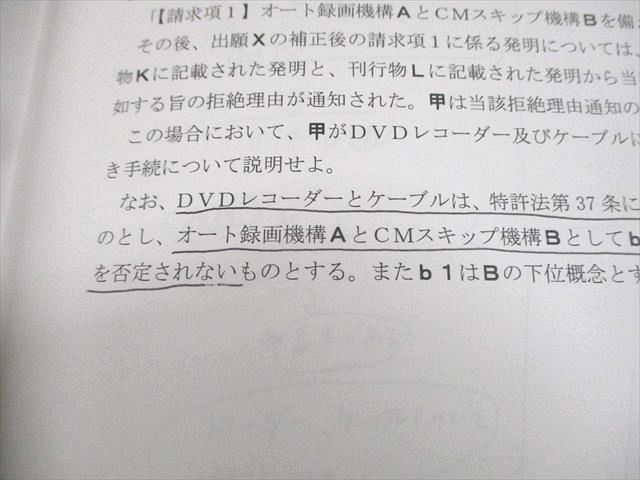 「【請求項１】オート録画機構ＡとＣＭスキップ機構Ｂを備
その後、出願Ｘの補正後の請求項１に係る発明については、
物Ｋに記載された発明と、刊行物Ｌに記載された発明から当
如する旨の拒絶理由が通知された。甲は当該拒絶理由通知の
この場合において、甲がＤＶＤレコーダー及びケーブルに
き手続について説明せよ。
なお、ＤＶＤレコーダーとケーブルは、特許法第 37 条に
のとし、オート録画機構ＡとＣＭスキップ機構Ｂとしてｂ
を否定されないものとする。またｂ１はＢの下位概念とす
レコーダー、ケーブルについて